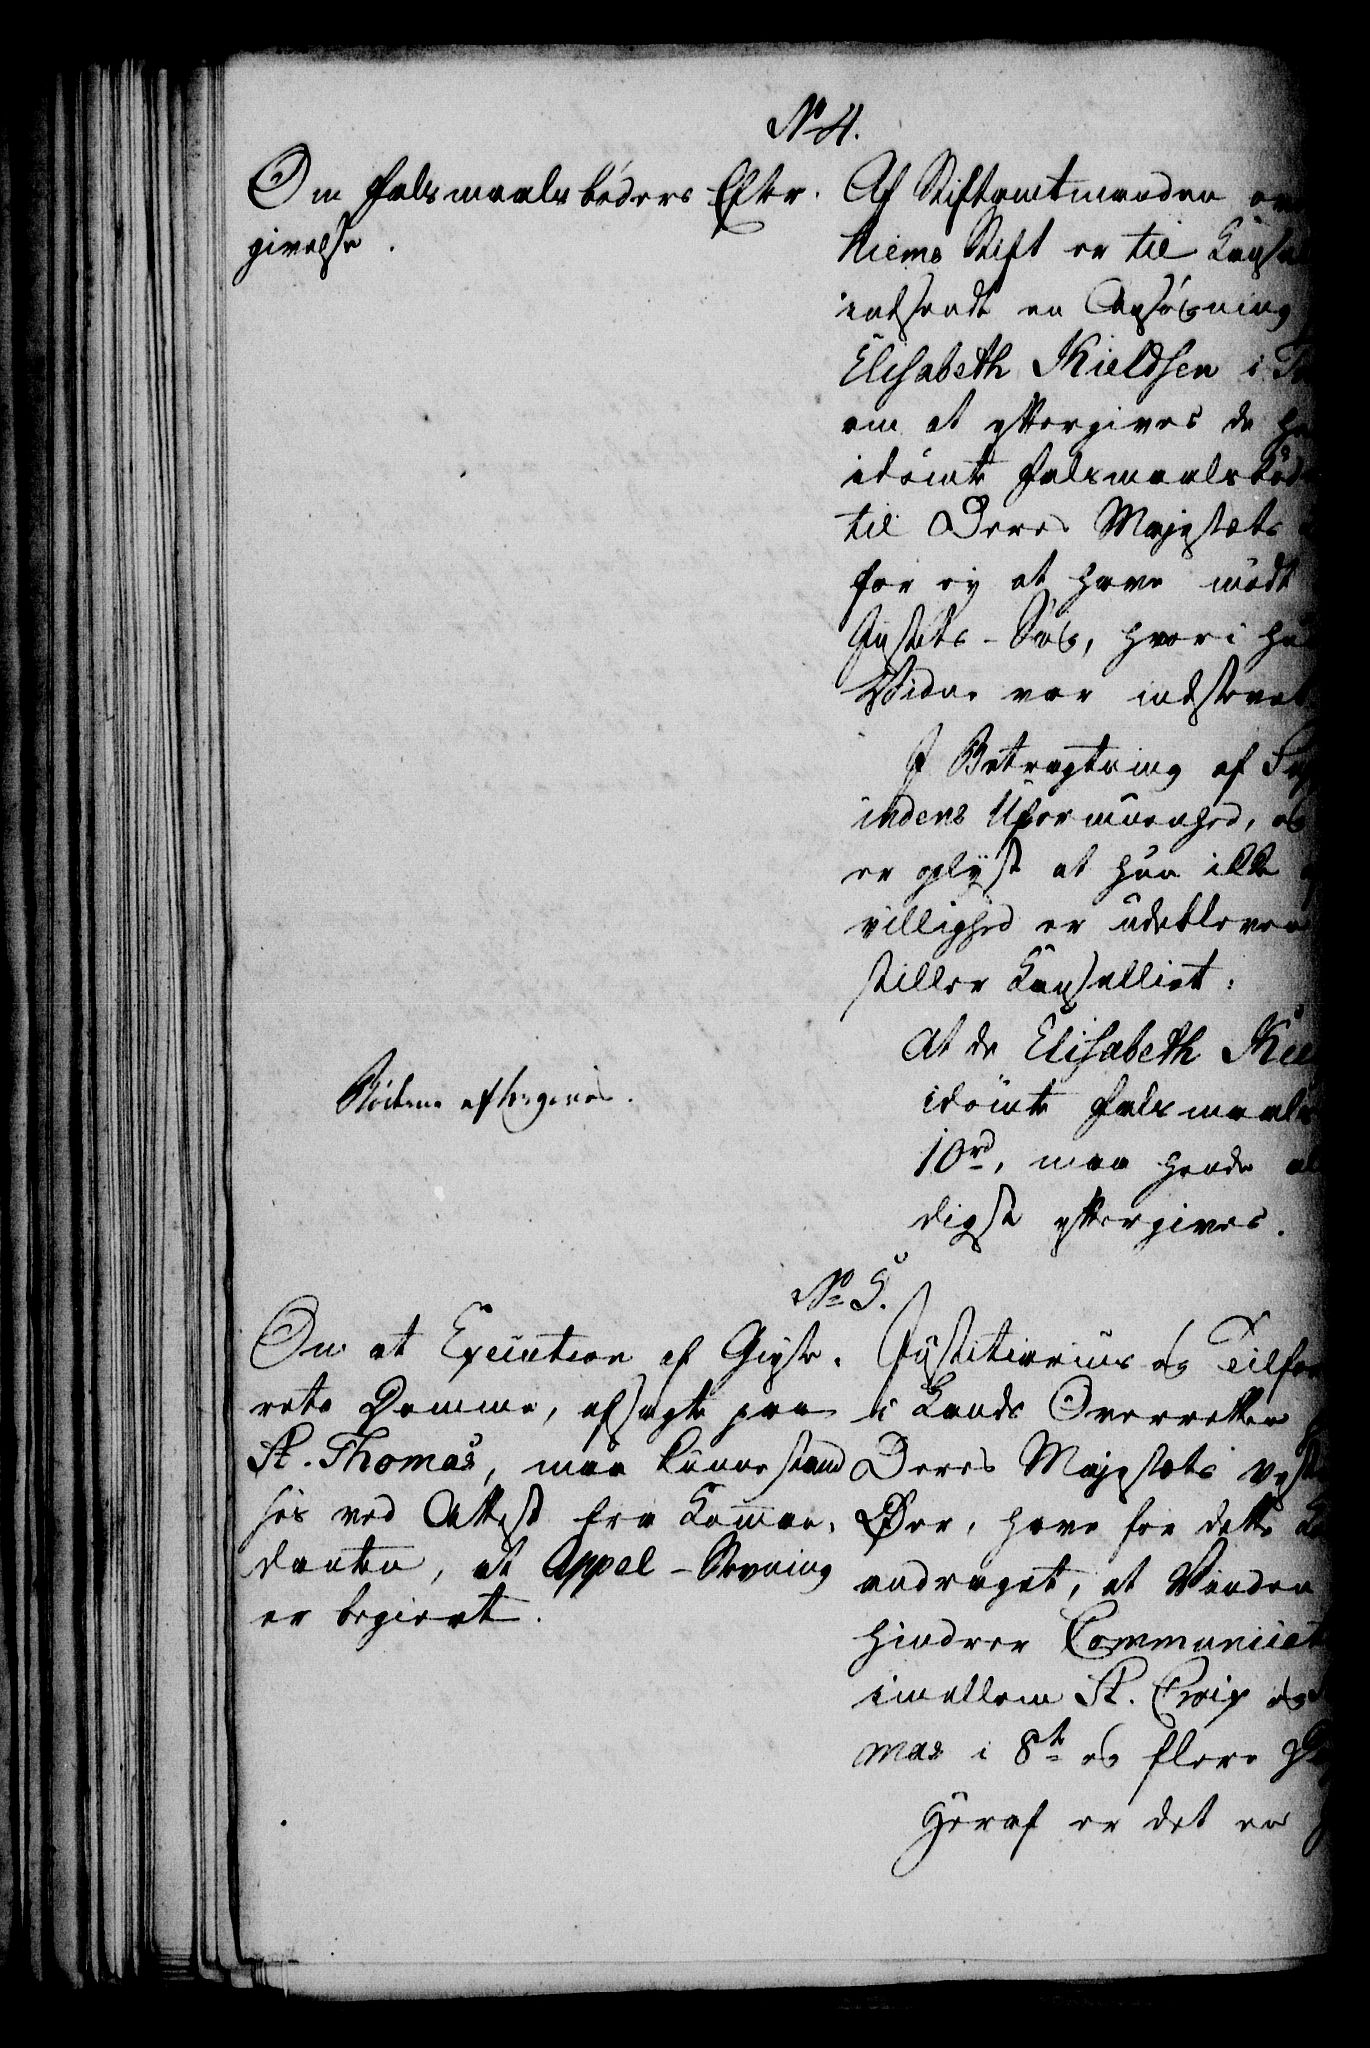 No 4.
Om Falsmaalsbøders Efter-
givelse.
Af Stiftamtmanden over
hiems Stift er til Cancel
indsendt en Ansøgning
Elisabeth Kieldsen i
om at eftergives de
idømte Falsmaalsbød
til Deres Majestæts
for ey at have mødt
Justits-Sag, hvori hun
Vidne var indstevnet
I Betragtning af
indens Uformuenhed, og
er oplyst at hun ikke
villighed er udebleven
stiller Cancelliet:
At de Elisabeth Kiel
idømte Falsmaals
10rd, maa hende al
digst eftergives.
Bøderne eftergives.
No 5.
Om at Execution af Gieste-
rets Domme, afsagte paa
St. Thomas, maa kunne stand
ses ved Attest fra Comman-
danten, at Appel-Stevning
er begiert.
Justitiarius og Tilfor
i Lands Overretten
Deres Majestæts vest
Øer, have for dette
andraget, at Vinden
hindrer Communicat
imellem St. Croix og
mas i 8te og flere
Heraf er det en